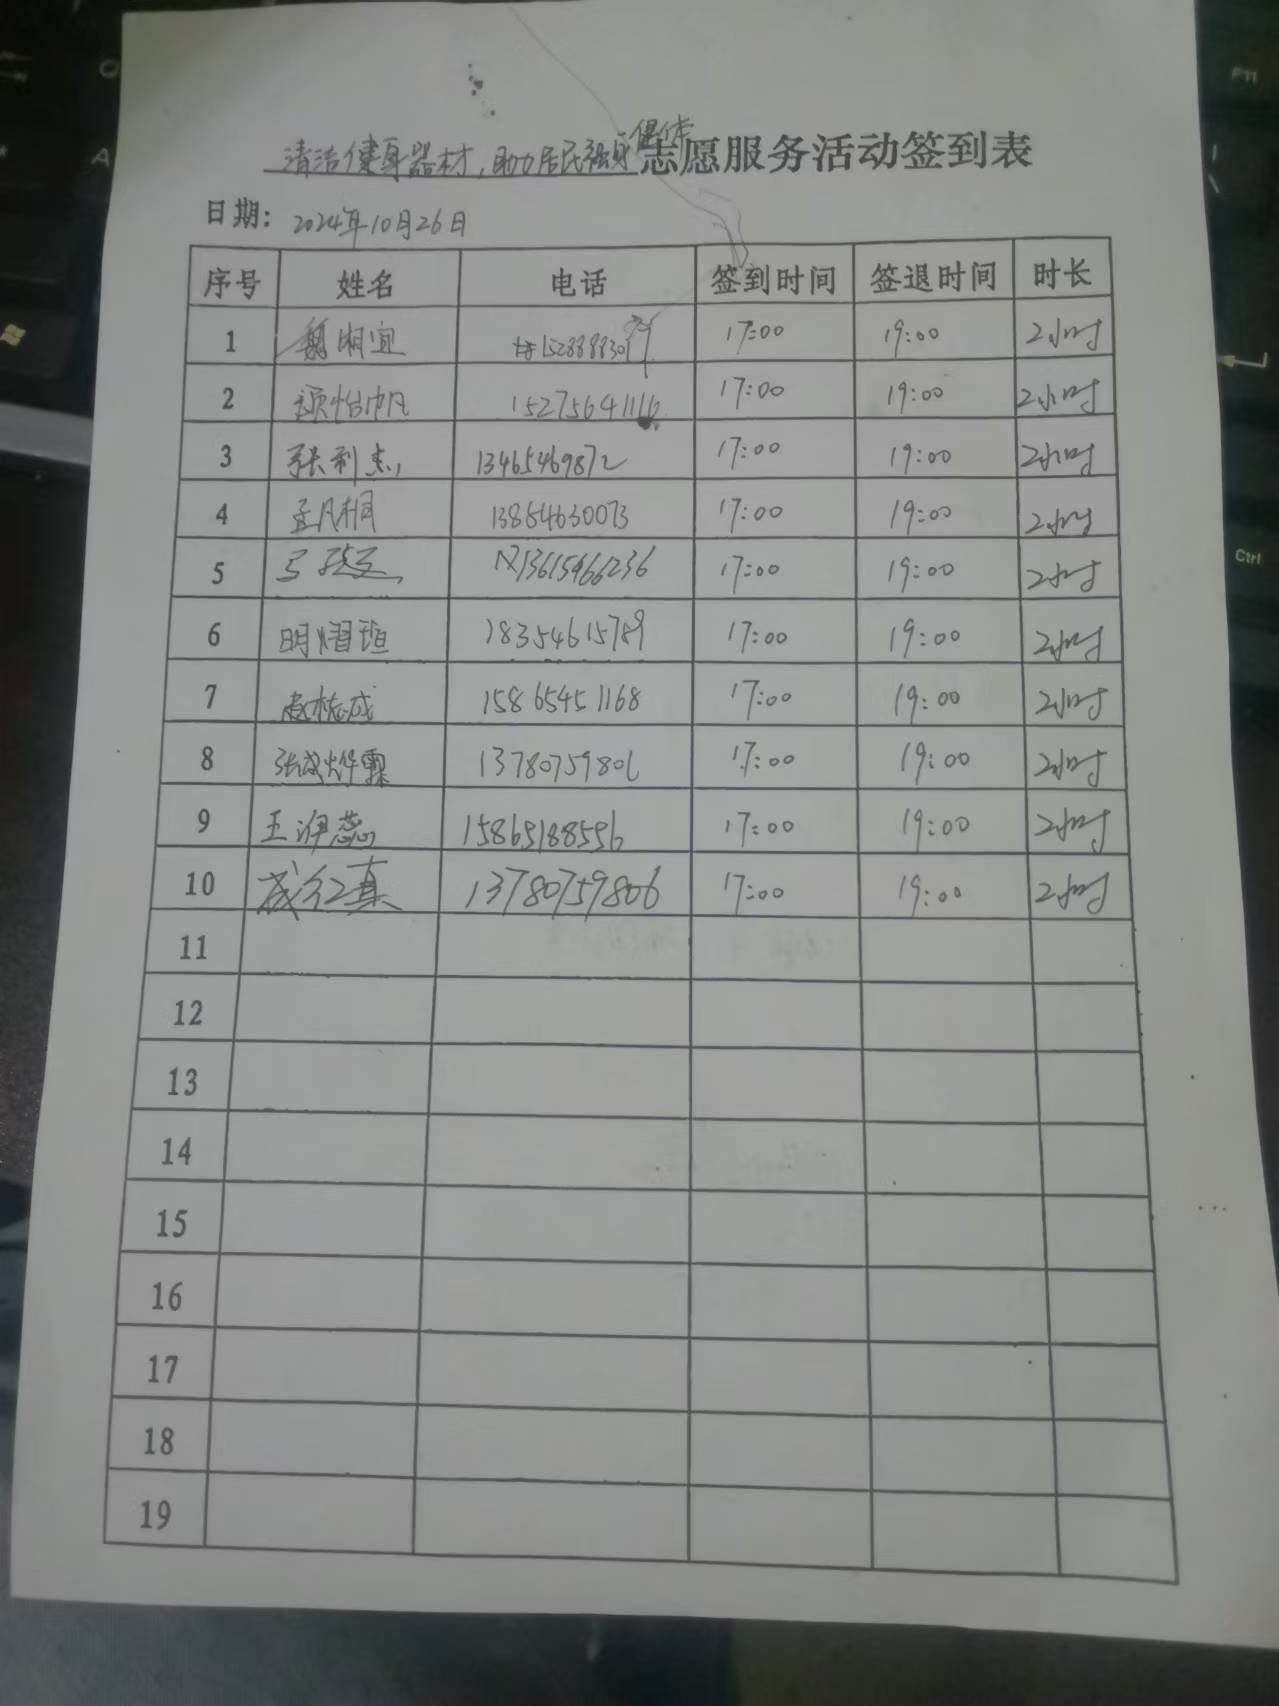 清洁健身器材,助力居民强身健体志愿服务活动签到表
日期: 2024年10月26日
序号 姓名 电话 签到时间 签退时间 时长
1 魏湘宜 17:00 19:00 2小时
2 15275641116 17:00 19:00 2小时
3 张利杰 13465469872 17:00 19:00 2小时
4 孟凡桐 13854630073 17:00 19:00 2小时
5 13615466236 17:00 19:00 2小时
6 明熠瑄 18354615789 17:00 19:00 2小时
7 15865451168 17:00 19:00 2小时
8 13780759806 17:00 19:00 2小时
9 王渖蕊 15865188556 17:00 19:00 2小时
10 成红真 13780759806 17:00 19:00 2小时
11
12
13
14
15
16
17
18
19
Fn
A
Ctrl